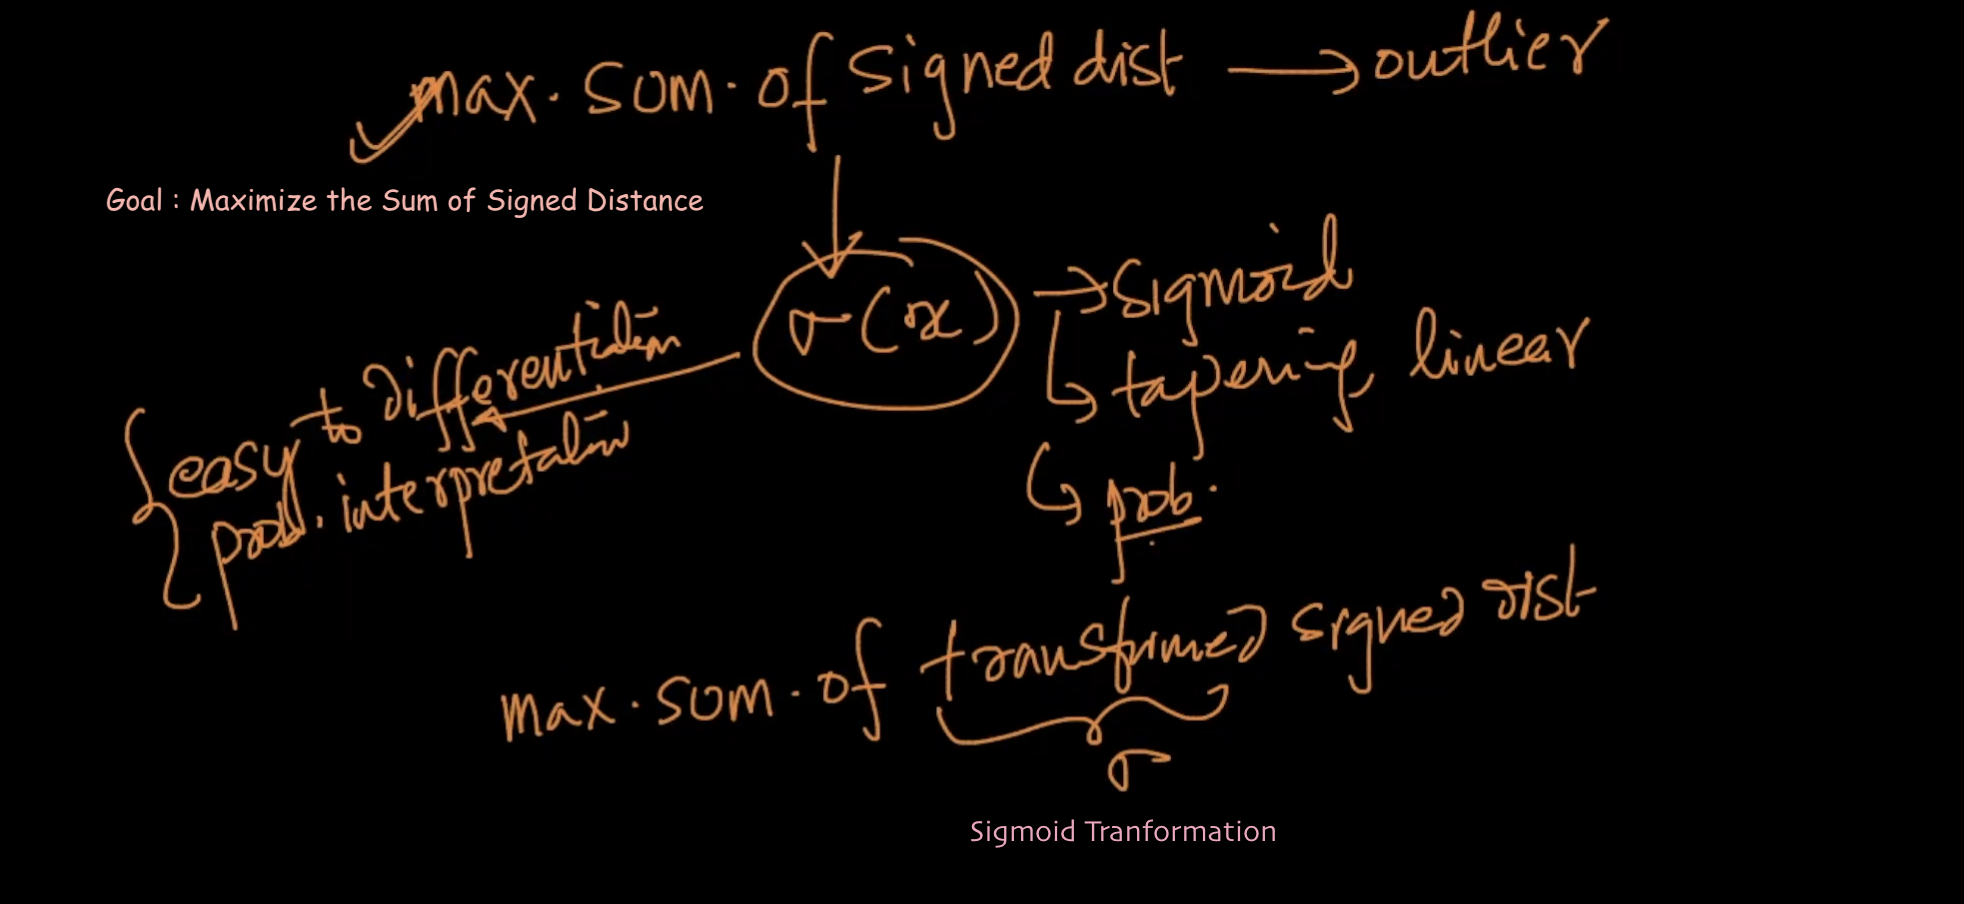 max. sum. of signed dist → outlier
Goal : Maximize the Sum of Signed Distance
σ(x) → sigmoid
tapering, linear
prob.
easy to differentiation
prob. interpretation
max. sum. of transformed signed dist
σ
Sigmoid Tranformation